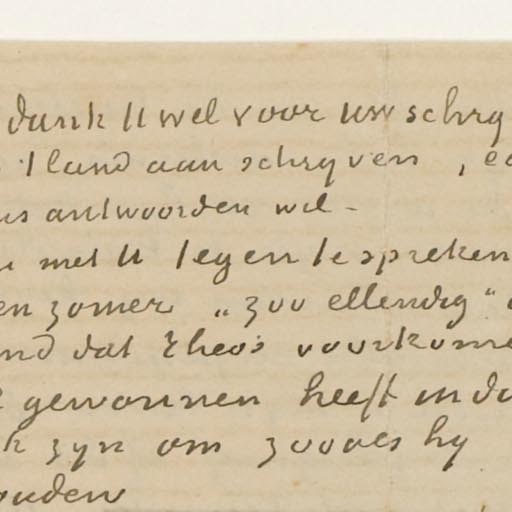 dank U wel voor uw schry
't land aan schryven, e
us antwoorden wil -
met U tegen te spreken
en zomer „zoo ellendig"
nd dat Theo's voorkome
gewonnen heeft in d
k zyn om zooals hy
ouden